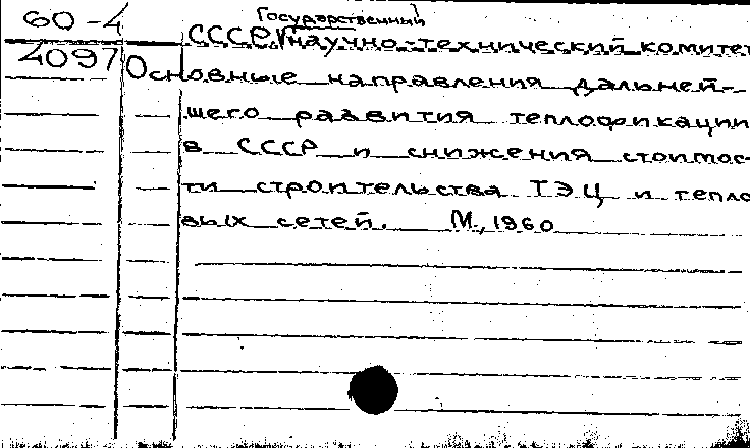 60-4
Государственный
СССР. научно-технический комитет
4097
Основные направления дальней-
шего развития теплофикации
в СССР и снижения стоимос-
ти строительства ТЭЦ и тепло
вых сетей. М., 1960